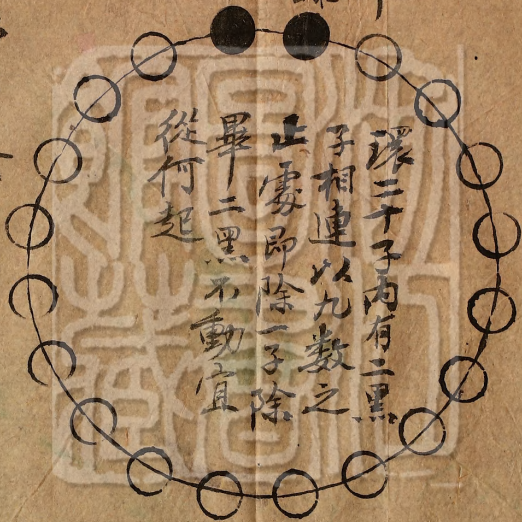 環二十子内有二黑
子相連以九數之
止處即除一子除
畢二黑不動宜
從何起